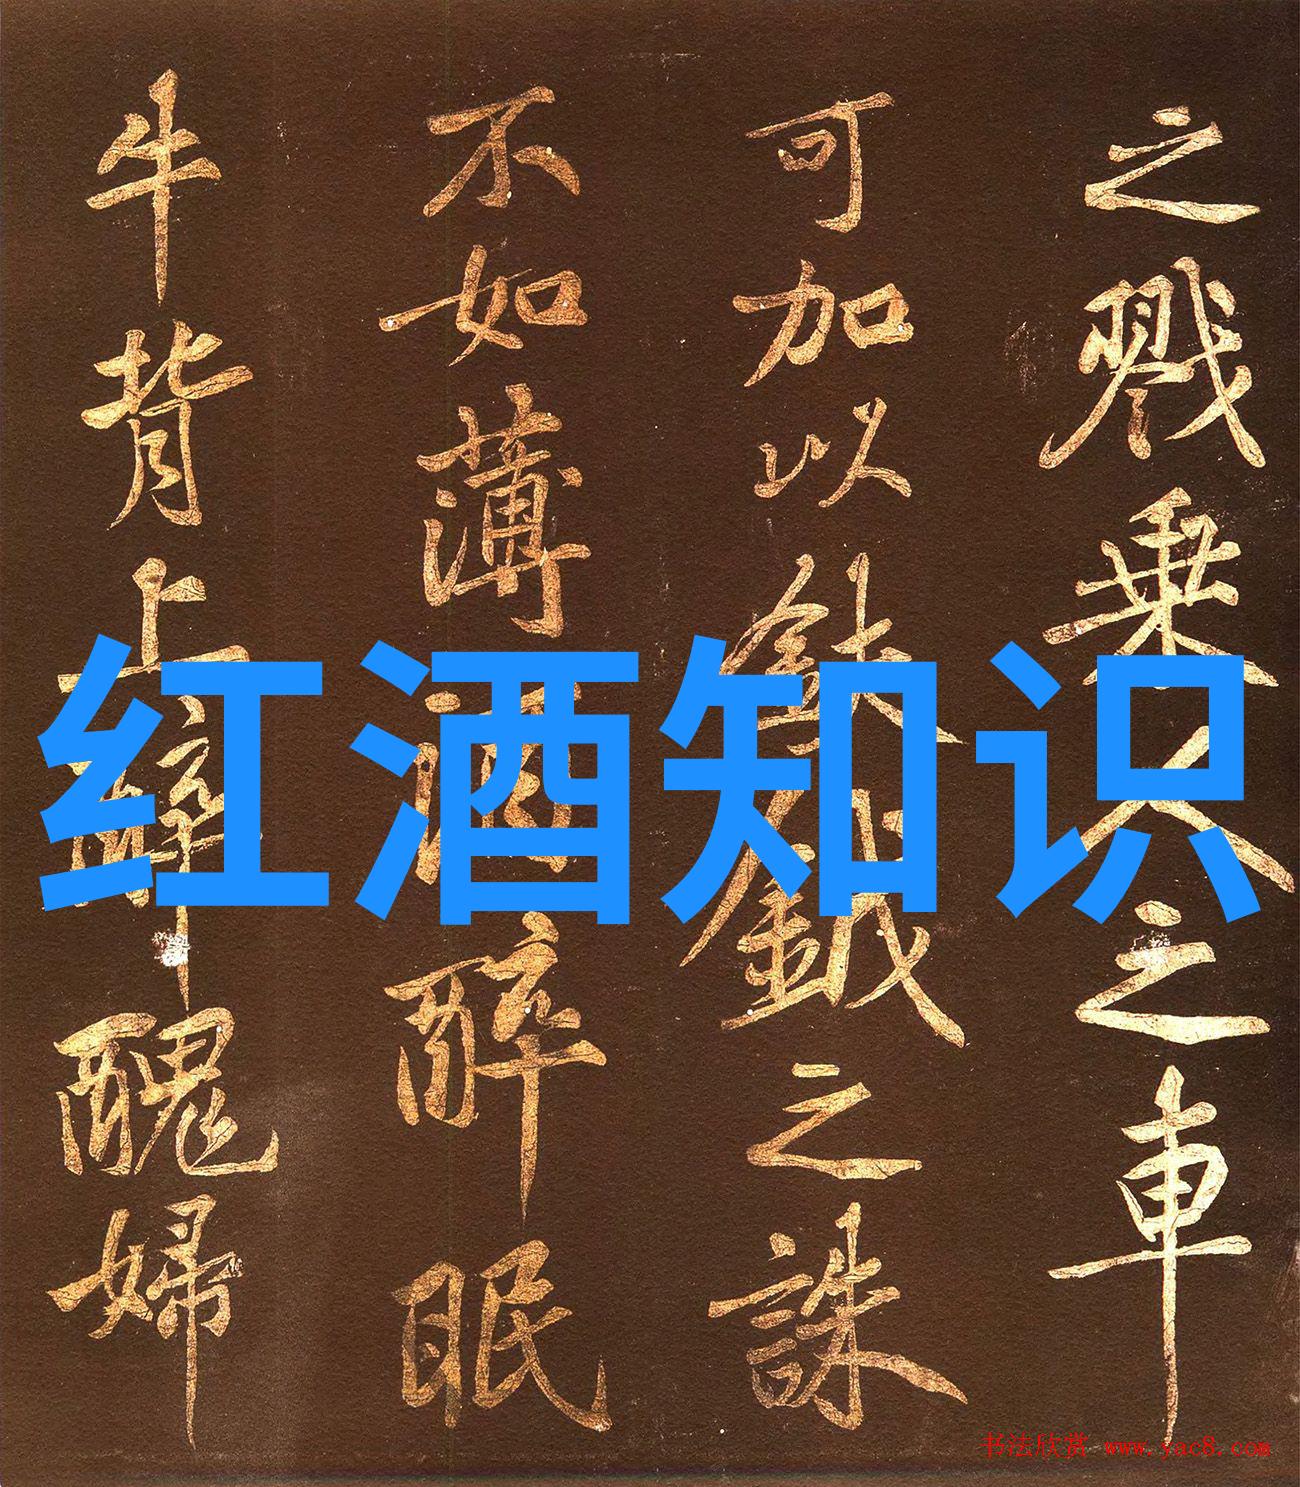 之戮乘人之車
可加以鈇鉞之誅
不如薄酒醉眠
牛背上醉醜婦
红酒知识
书法欣赏 www.yac8.com